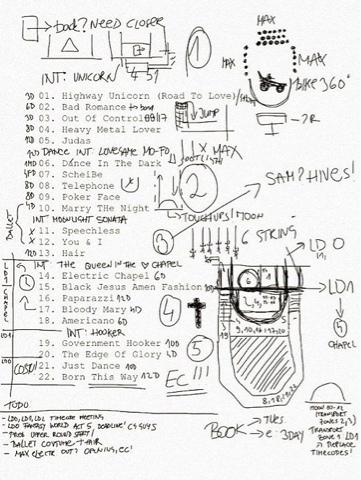 dock? NEED CLOSER
INT: UNICORN
1
MAX
MAX
MAX
BIKE 360°
3D 01. Highway Unicorn (Road To Love)
6D 02. Bad Romance
3D 03. Out Of Control
8D 04. Heavy Metal Lover
05. Judas
JUMP
DANCE INT: LOVESAME MO-FO
X MAX
06. Dance In The Dark
07. ScheiBe
8D 08. Telephone
8D 09. Poker Face
10. Marry THe Night
2
TOUCHUPS! MOON
SAM? HINES!
Ballet
INT MOONLIGHT SONATA
X 11. Speechless
X 12. You & I
13. Hair
3
6 STRING
LD0
INT THE QUEEN IN THE CHAPEL
14. Electric Chapel 6D
15. Black Jesus Amen Fashion
16. Paparazzi 12D
17. Bloody Mary 4D
18. Americano 6D
4
LD1
CHAPEL
INT: HOOKER
19. Government Hooker 10D
20. The Edge Of Glory 4D
21. Just Dance 10D
22. Born This Way 12D
5
EC!!!
LD1
5
CHAPEL
TODO
- LD0, LD1, LD2 TIMECODE MEETING
- LD0 FANTASY WORLD ACT 5, DEADLINE!
- PROB UPPER ROUND START!
- BALLET COSTUME + HAIR
- MAX ELECTR OUT? OPENING, EC!
BOOK → TUES
→ e: 3DAY
TRANSPORT
ZONE 1 LD1
→ REPLACE
TIMECODES!